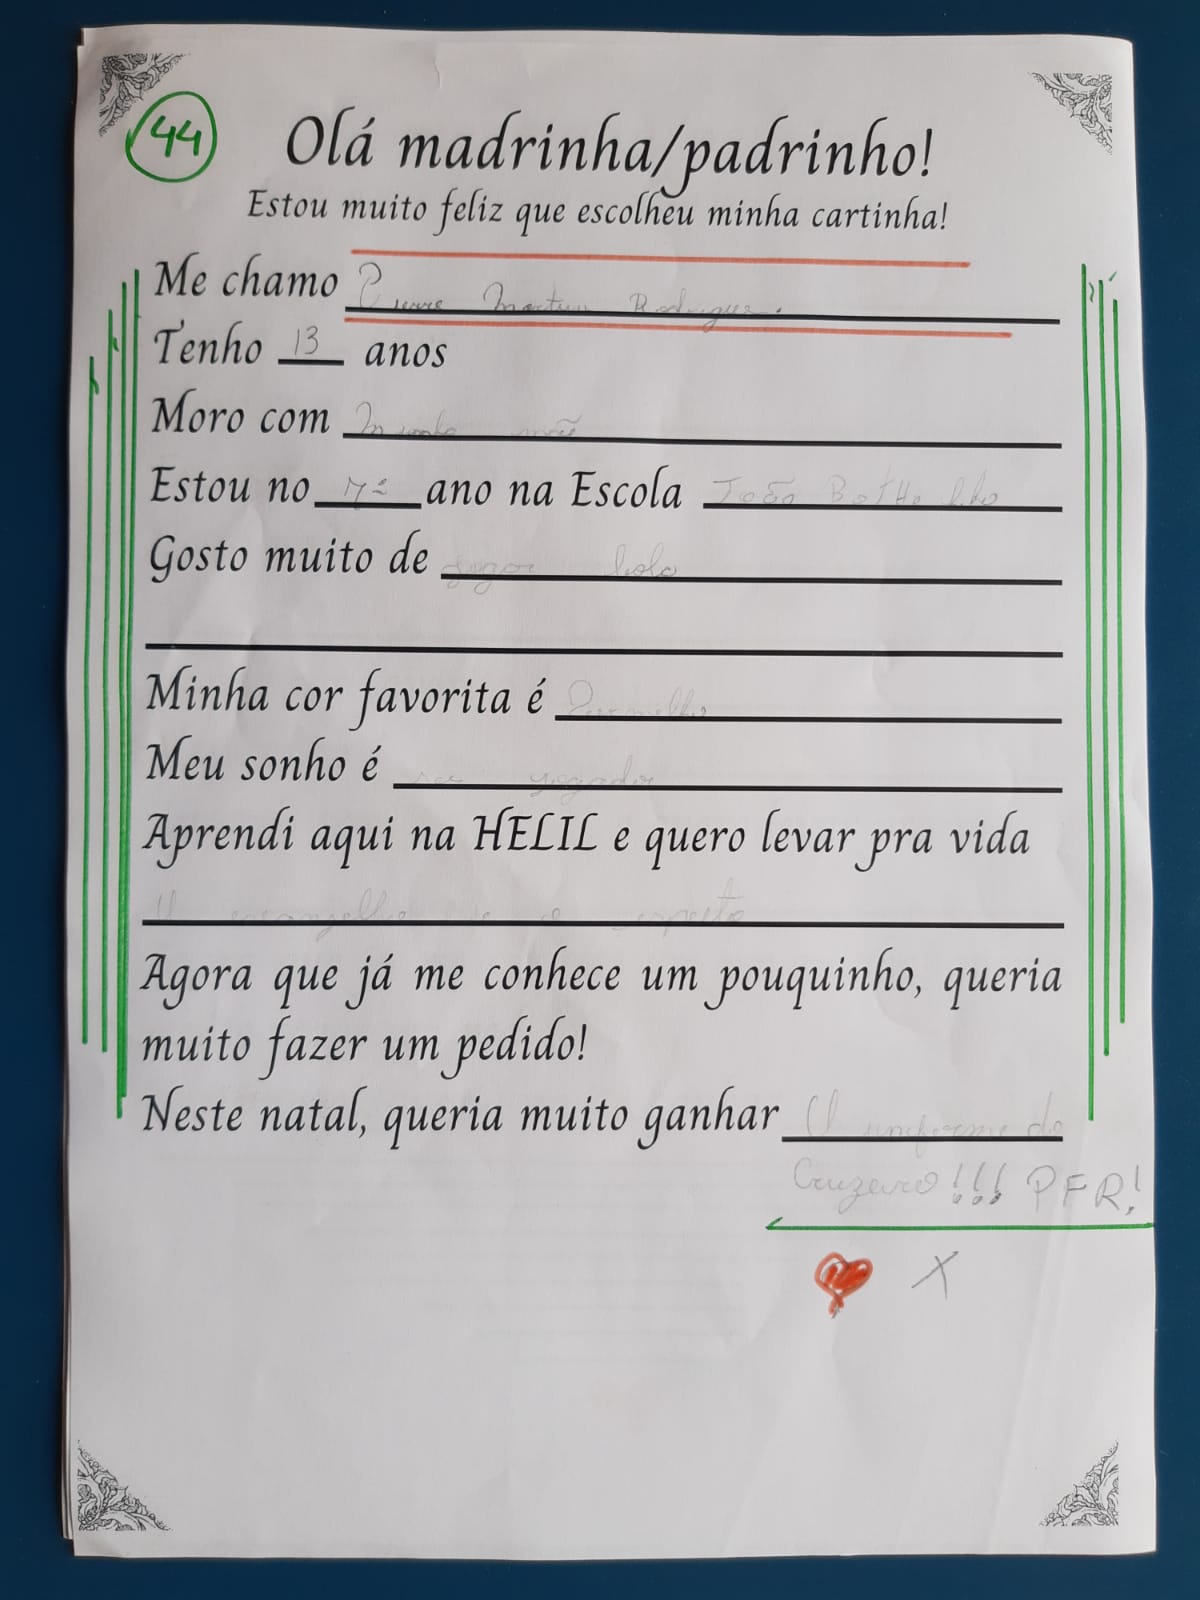 44
Olá madrinha/padrinho!
Estou muito feliz que escolheu minha cartinha!
Me chamo Pierre Martins Rodrigues.
Tenho 13 anos
Moro com Minha mãe
Estou no 7º ano na Escola João Bothelho
Gosto muito de jogar bola
Minha cor favorita é Vermelho
Meu sonho é ser jogador
Aprendi aqui na HELIL e quero levar pra vida
respeito
Agora que já me conhece um pouquinho, queria
muito fazer um pedido!
Neste natal, queria muito ganhar U uniforme do
Cruzeiro!!! PFR!
X